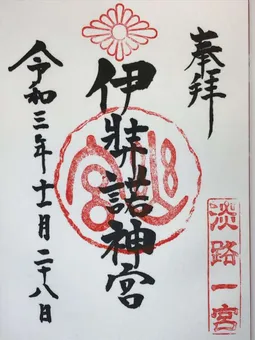 奉拝
伊弉諾神宮
令和三年十一月二十八日
淡路一宮